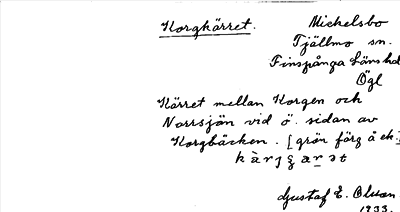 Korgkärret. Mickelsbo
Tjällmo sn.
Finspånga länshd
Ögl
Kärret mellan Korgen och
Norrsjön vid ö. sidan av
Korgbäcken. [grön färg å ek.]
Gustaf E. Olsson
1933.